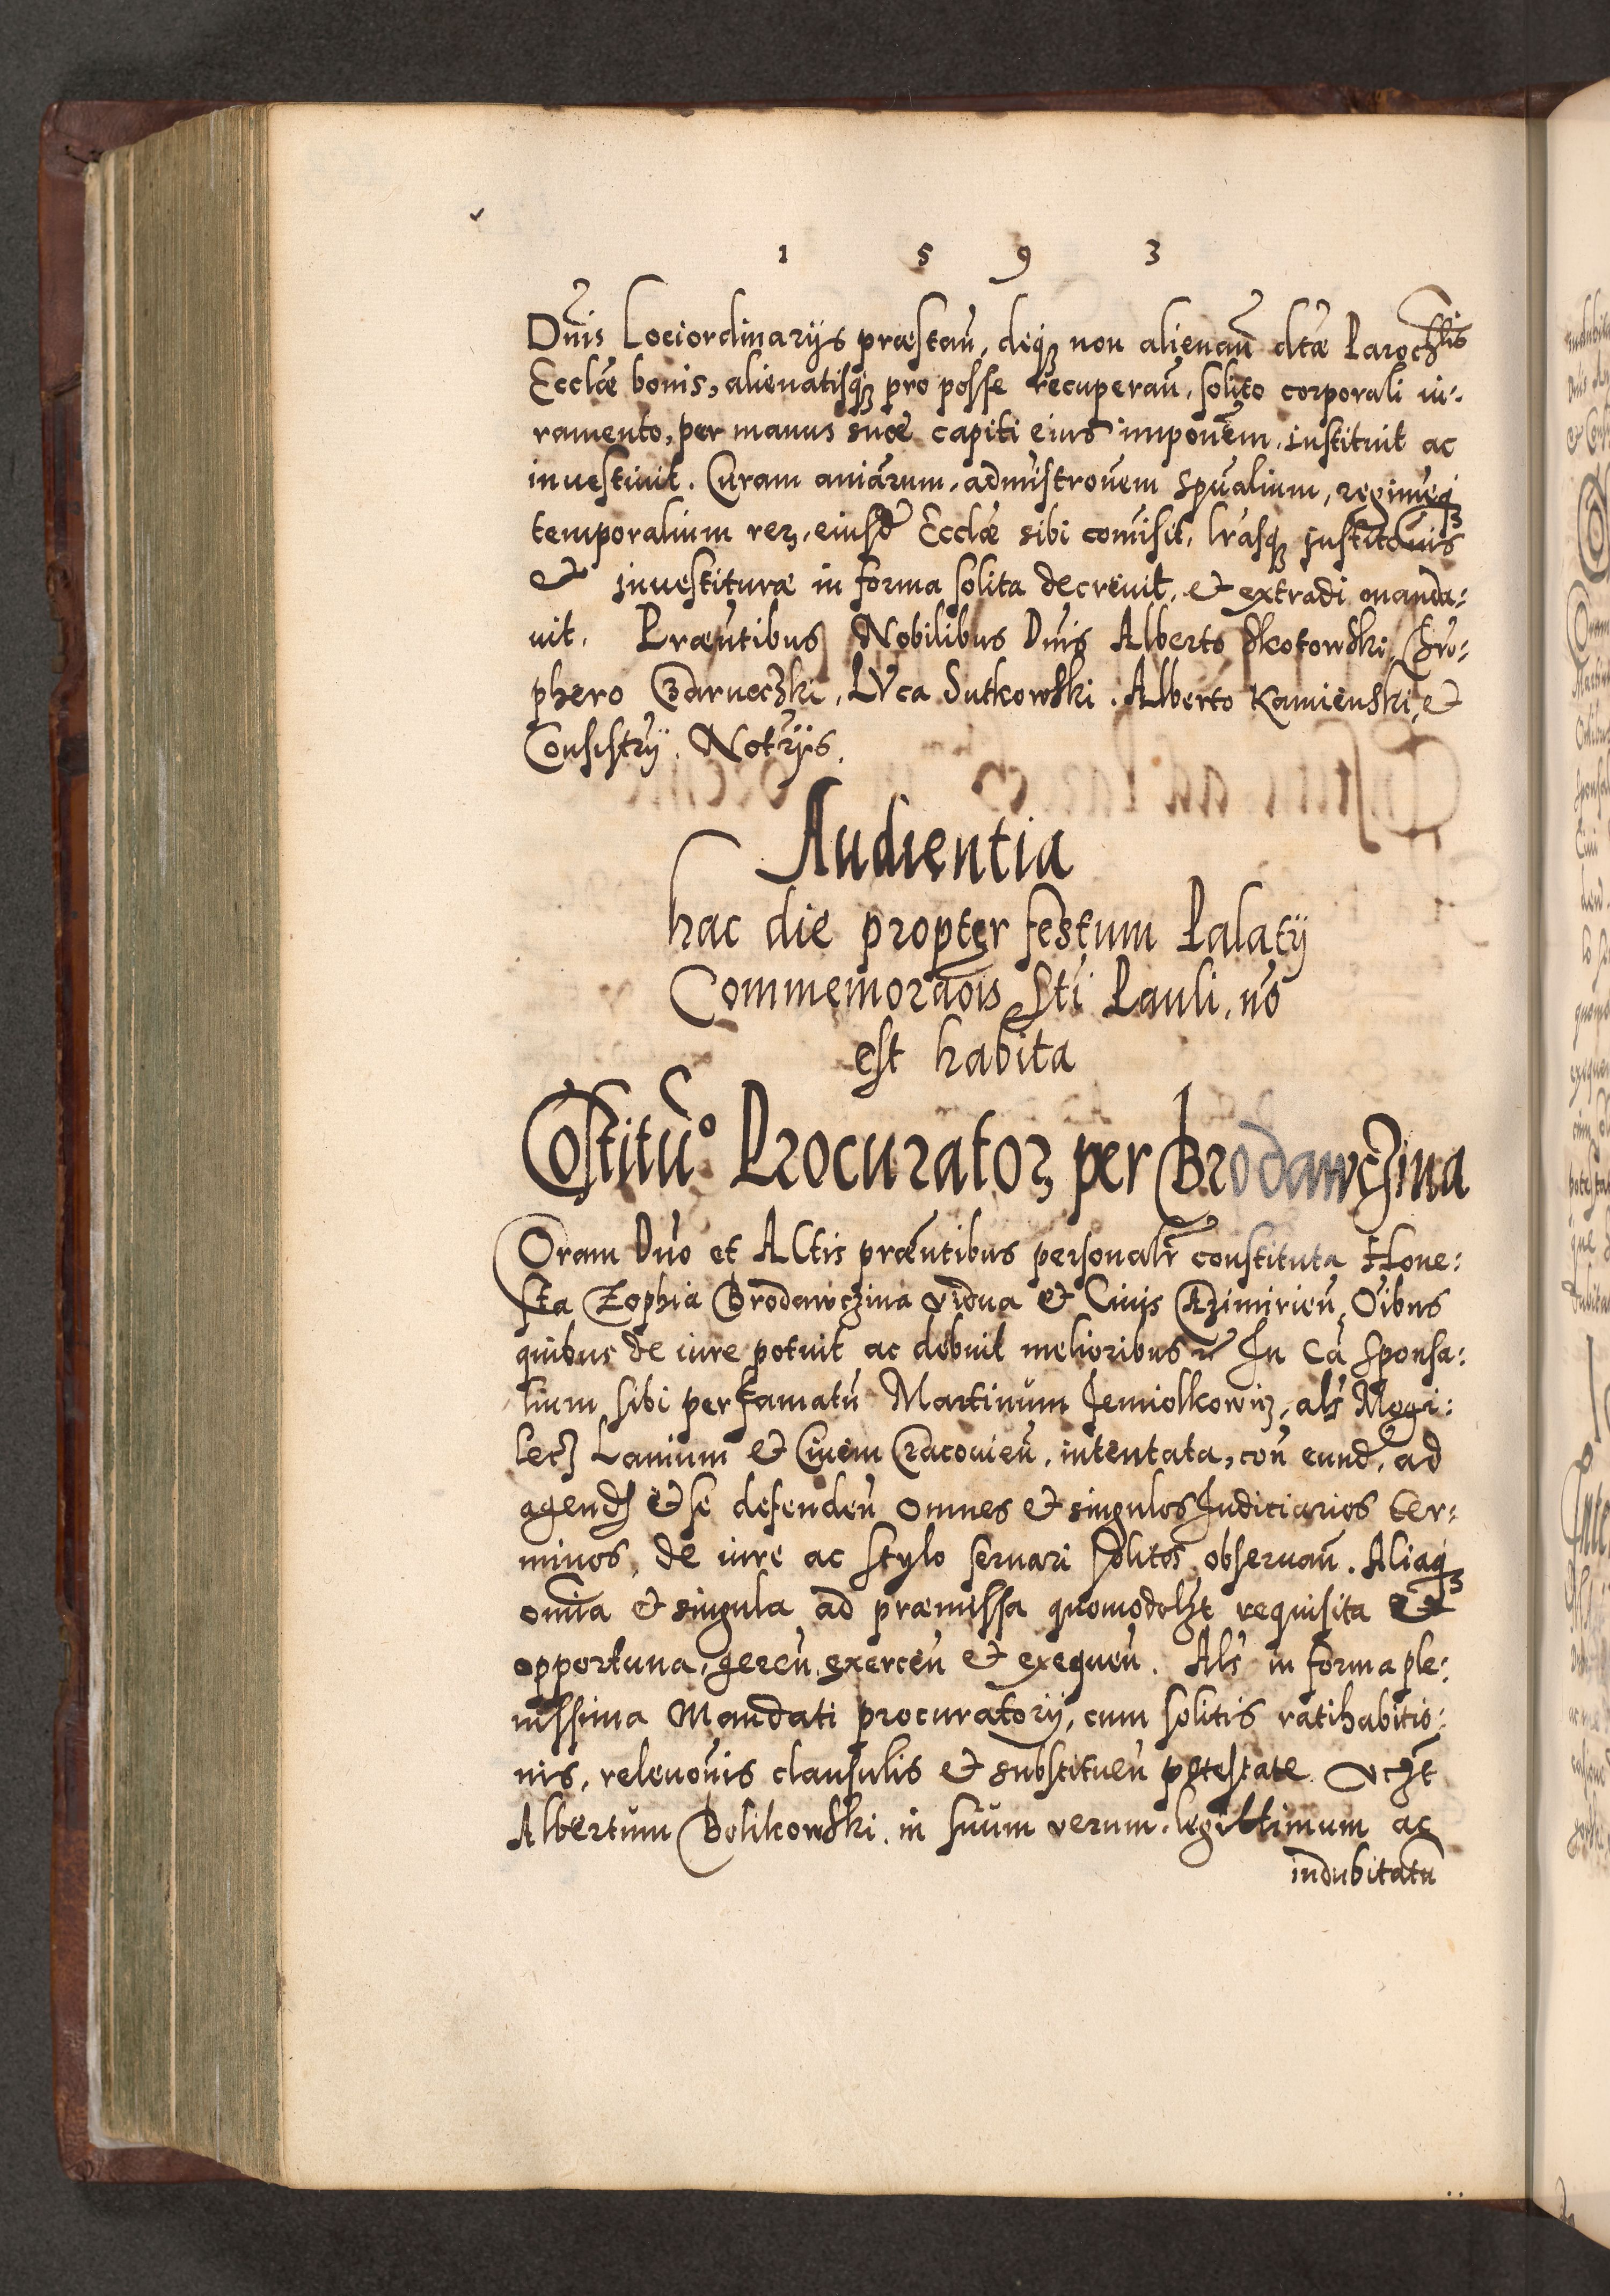 1 5 9 3
Dn̄is Lociordinarijs præstan̄, deq₃ non alienan̄ dc̄tæ Paroch̄lis
Eccl̄æ bonis, alienatisq₃ pro posse recuperan̄, solito corporali iu-
ramento, per manus suæ capiti eius imponēm, instituit ac
inuestiuit. Curam aniārum, admīstronēm spūalium, regimēq₃
temporalium rerꝫ, eiusd̄ Eccl̄æ sibi com̄isit, lr̄asq₃ institōnis
et inuestituræ in forma solita decreuit, et extradi manda:
uit. Præn̄tibus Nobilibus Dn̄is Alberto Skotowski, Chrō-
phero Czarneczki, LVca Sutkowski, Alberto Kamienski, et
Consistrȳ Notr̄ijs.
Audientia
hac die propter festum Palatij
Commemoraōis Sti Pauli, nō
est habita
Cōstitūo Procuratorꝫ per Brodawczina
Coram Dn̄o et Actis præn̄tibus personalr̄ constituta Hone:
sta Zophia Brodawczina vidua et Ciuis Kzimirien̄, Oībus
quibus de iure potuit ac debuit melioribus r̄ In cā sponsa:
lium sibi per famatū Martinum Jemiolkowicz, als̄ Mogi:
lecz Lanium et Ciuem Cracouien̄, intentata, con̄ eund̄, ad
agend̄ et se defenden̄ omnes et singulos Judiciarios ter:
minos, de iure ac stylo seruari solitos obseruan̄. Aliaq₃
omīa et singula ad præmissa quomodolz̄t requisita et
opportuna, geren̄ exercen̄ et exequen̄. Als̄ in forma ple:
nissima Mandati procuratorij, cum solitis ratihabitio:
nis, releuōnis clausulis et substituen̄ potestate
Albertum Bolikowski, in suum verum, legittimum ac
indubitatū